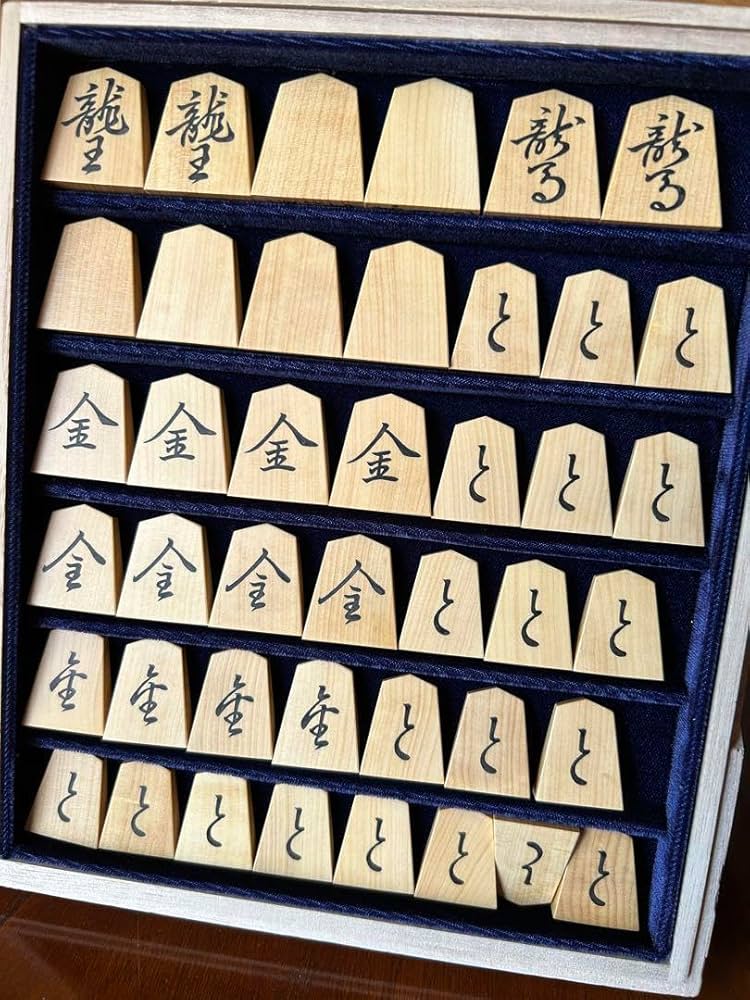 龍王 龍王 龍馬 龍馬
と と と
金 金 金 金 と と と
全 全 全 全 と と と
金 金 金 金 と と と
と と と と と と と と